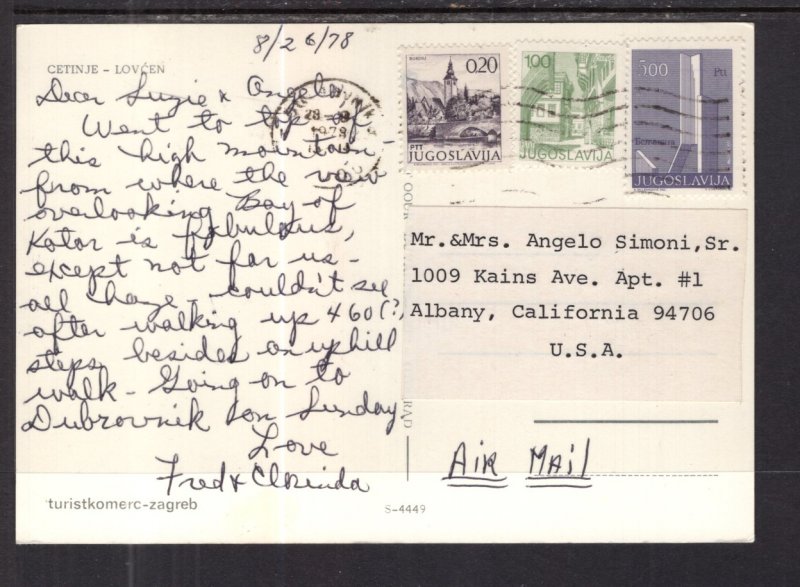 8/26/78
CETINJE - LOVĆEN
Dear Suzie & Angelo
Went to top of
this high mountain -
from where the view
overlooking Bay of
Kotor is fabulous,
except not for us -
all haze - couldn't see
after walking up 460(?)
steps, besides an uphill
walk - Going on to
Dubrovnik on Sunday
Love
Fred & Clorinda
turistkomerc-zagreb
S-4449
0,20
PTT
JUGOSLAVIJA
100
JUGOSLAVIJA
500
Ptt
JUGOSLAVIJA
1978
Mr.&Mrs. Angelo Simoni,Sr.
1009 Kains Ave. Apt. #1
Albany, California 94706
U.S.A.
AIR MAIL